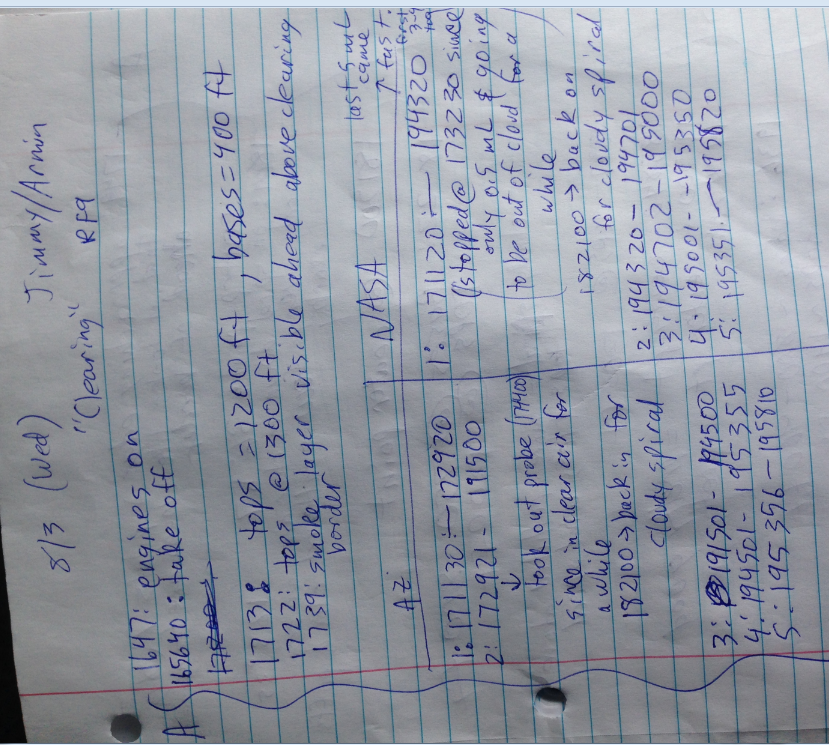 8/3 (Wed) Jimmy/Armin
"Clearing" RF9
1647: engines on
165640: take off
1713: tops = 1200 ft, bases = 400 ft
1722: tops @ 1300 ft
1739: smoke layer visible ahead above clearing
border
AZ
1: 171130 - 172920
2: 172921 - 191500
↓
took out probe (174400)
since in clear air for
a while
182100 → back in for
cloudy spiral
3: 191501 - 194500
4: 194501 - 195355
5: 195356 - 195810
NASA
last 5 mL
came
↑ fast.
first
1: 171120 - 194320
(stopped @ 173230 since
only 0.5 mL & going
to be out of cloud for a
while
182100 → back on
for cloudy spiral
2: 194320 - 194701
3: 194702 - 195000
4: 195001 - 195350
5: 195351 - 195820
A